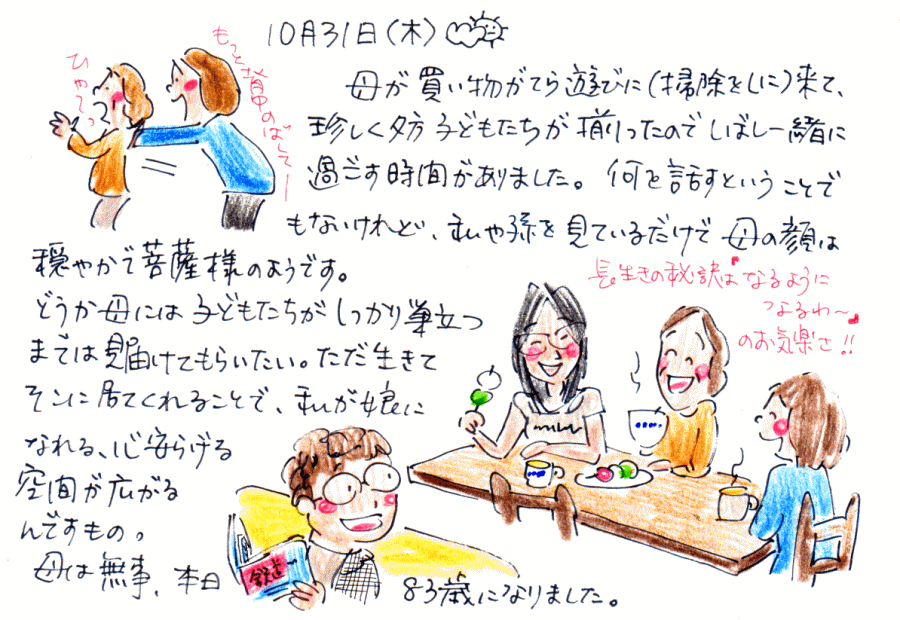 10月31日(木)
もっと背中のばしてー
ひゃぁっ
母が買い物がてら遊びに(掃除をしに)来て、
珍しく夕方子どもたちが揃ったのでしばし一緒に
過ごす時間がありました。何を話すということで
もないけれど、私や孫を見ているだけで母の顔は
穏やかで菩薩様のようです。
どうか母には子どもたちがしっかり巣立つ
までは見届けてもらいたい。ただ生きて
そこに居てくれることで、私が娘に
なれる、心安らげる
空間が広がる
んですもの。
母は無事、本日
83歳になりました。
長生きの秘訣は"なるように
なるわ〜"
のお気楽さ!!
鉄道